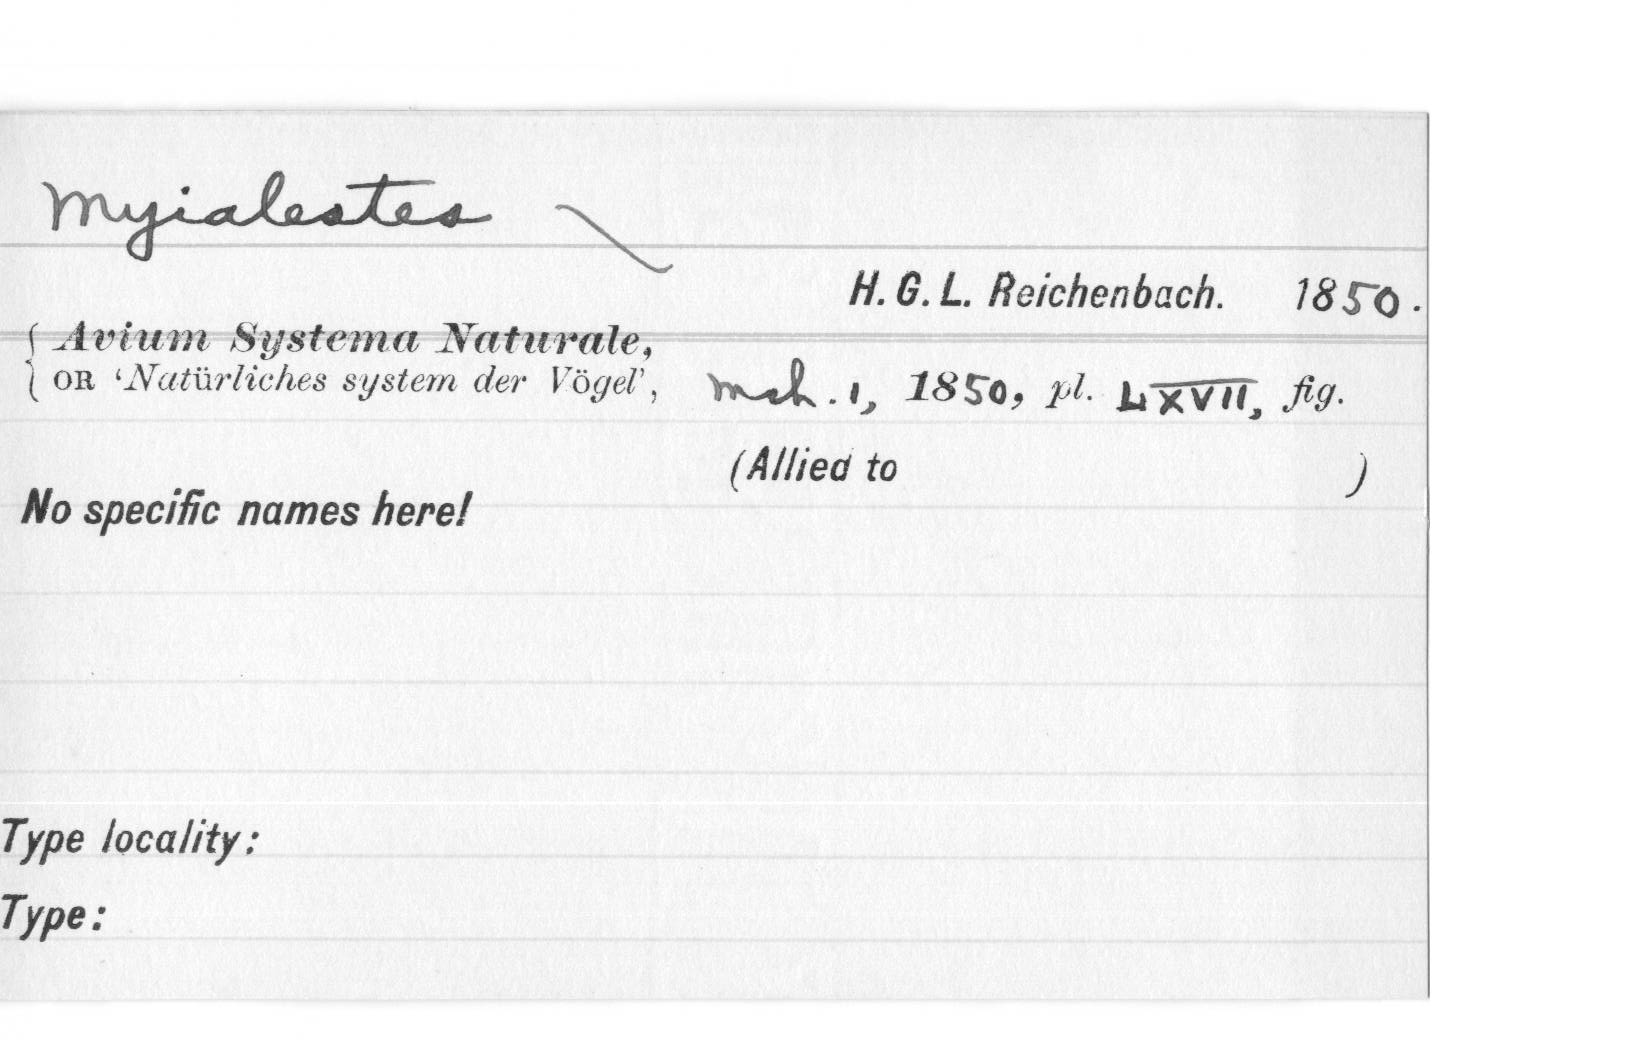 Myialestes
H. G. L. Reichenbach. 1850.
{ Avium Systema Naturale,
OR ‘Natürliches system der Vögel’, Mch. 1, 1850, pl. LXVII, fig.
(Allied to )
No specific names here!
Type locality:
Type: